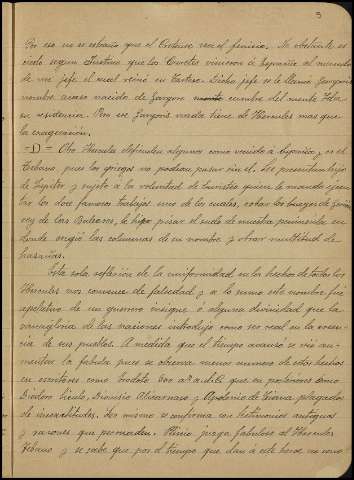 3
Por eso no es extraño que el Cretense sea el fenicio. No obstante es
cierto segun Justino que los Curetes vinieron a España al mando
de un jefe el cual reinó en Tarteso. Dicho jefe se le llamó Gargoris
nombre acaso nacido de Gargora monte cumbre del monte Ida
su residencia. Pero ese Gargoris nada tiene de Hercules mas que
la exageración.
-D- = Otro Hercules defienden algunos como venido a España y es el
Tebano pues los griegos no podian pasar sin el. Los presentan hijo
de Jupiter y sujeto a la voluntad de Euristeo quien le mandó ejecu-
tar los doce famosos trabajos uno de los cuales, robar los bueyes de Gerion
rey de las Baleares, le hizo pisar el suelo de nuestra peninsula en
donde erigió las columnas de su nombre y obrar multitud de
hazañas.
Esta sola reflexión de la uniformidad en los hechos de todos los
Hercules nos convence de falsedad y a lo sumo este nombre fue
apelativo de un guerrero insigne o alguna divinidad que la
vanagloria de las naciones introdujo como ser real en la
de sus pueblos. A medida que el tiempo avanzó se vió au-
mentar la fabula pues se observa menor numero de estos hechos
en escritores como Erodoto 500 a. d. J.C. que en posteriores como
Diodoro Siculo, Dionisio Alicarnaso y Apolonio de Tiana plagados
de inexactitudes. Lo mismo se confirma con testimonios antiguos
y razones que persuaden. Plinio juzga fabuloso al Hercules
Tebano y se sabe que por el tiempo que dan a este heroe no eran